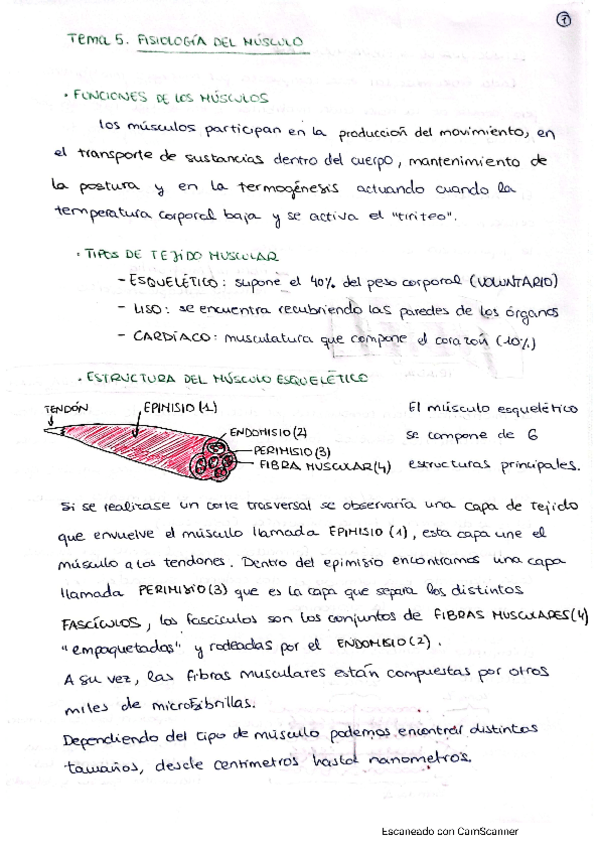 1
TEMA 5. FISIOLOGÍA DEL MÚSCULO
· FUNCIONES DE LOS MÚSCULOS
Los músculos participan en la producción del movimiento, en
el transporte de sustancias dentro del cuerpo, mantenimiento de
la postura y en la termogénesis actuando cuando la
temperatura corporal baja y se activa el "tiriteo".
· TIPOS DE TEJIDO MUSCULAR
- ESQUELÉTICO: supone el 40% del peso corporal (VOLUNTARIO)
- LISO: se encuentra recubriendo las paredes de los órganos
- CARDÍACO: musculatura que compone el corazón (10%)
· ESTRUCTURA DEL MÚSCULO ESQUELÉTICO
TENDÓN
EPIMISIO (1)
ENDOMISIO (2)
PERIMISIO (3)
FIBRA MUSCULAR (4)
El músculo esquelético
se compone de 6
estructuras principales.
Si se realizase un corte trasversal se observaría una capa de tejido
que envuelve el músculo llamada EPIMISIO (1), esta capa une el
músculo a los tendones. Dentro del epimisio encontramos una capa
llamada PERIMISIO (3) que es la capa que separa los distintos
FASCÍCULOS, los fascículos son los conjuntos de FIBRAS MUSCULARES (4)
"empaquetados" y rodeadas por el ENDOMISIO (2).
A su vez, las fibras musculares están compuestas por otros
miles de microfibrillas.
Dependiendo del tipo de músculo podemos encontrar distintos
tamaños, desde centímetros hasta nanometros.
Escaneado con CamScanner